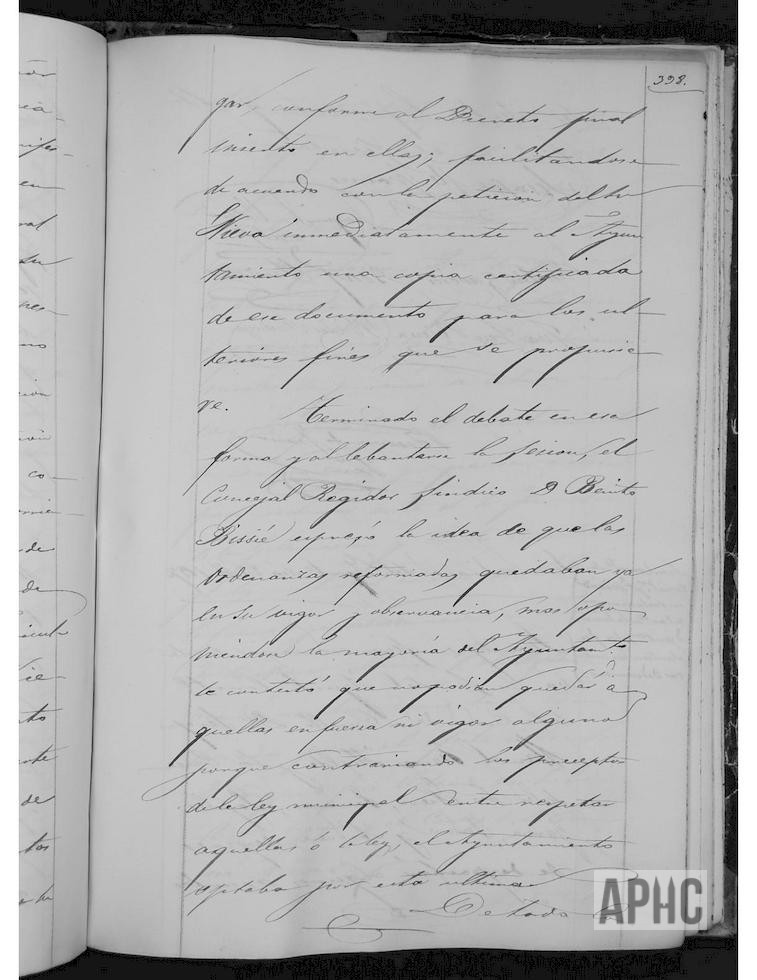 338.
gar, conforme al Decreto final
inserto en ellas; facilitandose
de acuerdo con la peticion del Sr
Nieva inmediatamente al Ayun
tamiento una copia certificada
de ese documento para los ul-
teriores fines que se propusie-
re. Terminado el debate en esa
forma y al lebantarse la sesion, el
Concejal Regidor Sindico D Benito
Bissié espresó la idea de que las
Ordenanzas reformadas quedaban ya
en su vigor y observancia, mas opo
niendose la mayoría del Ayuntamto
le contestó que no podian quedar a
quellas en fuerza ni vigor alguno
porque contrariando los preceptos
de la ley municipal entre respetar
aquellas ó la ley, el Ayuntamiento
optaba por esta ultima
De todo lo
APHC